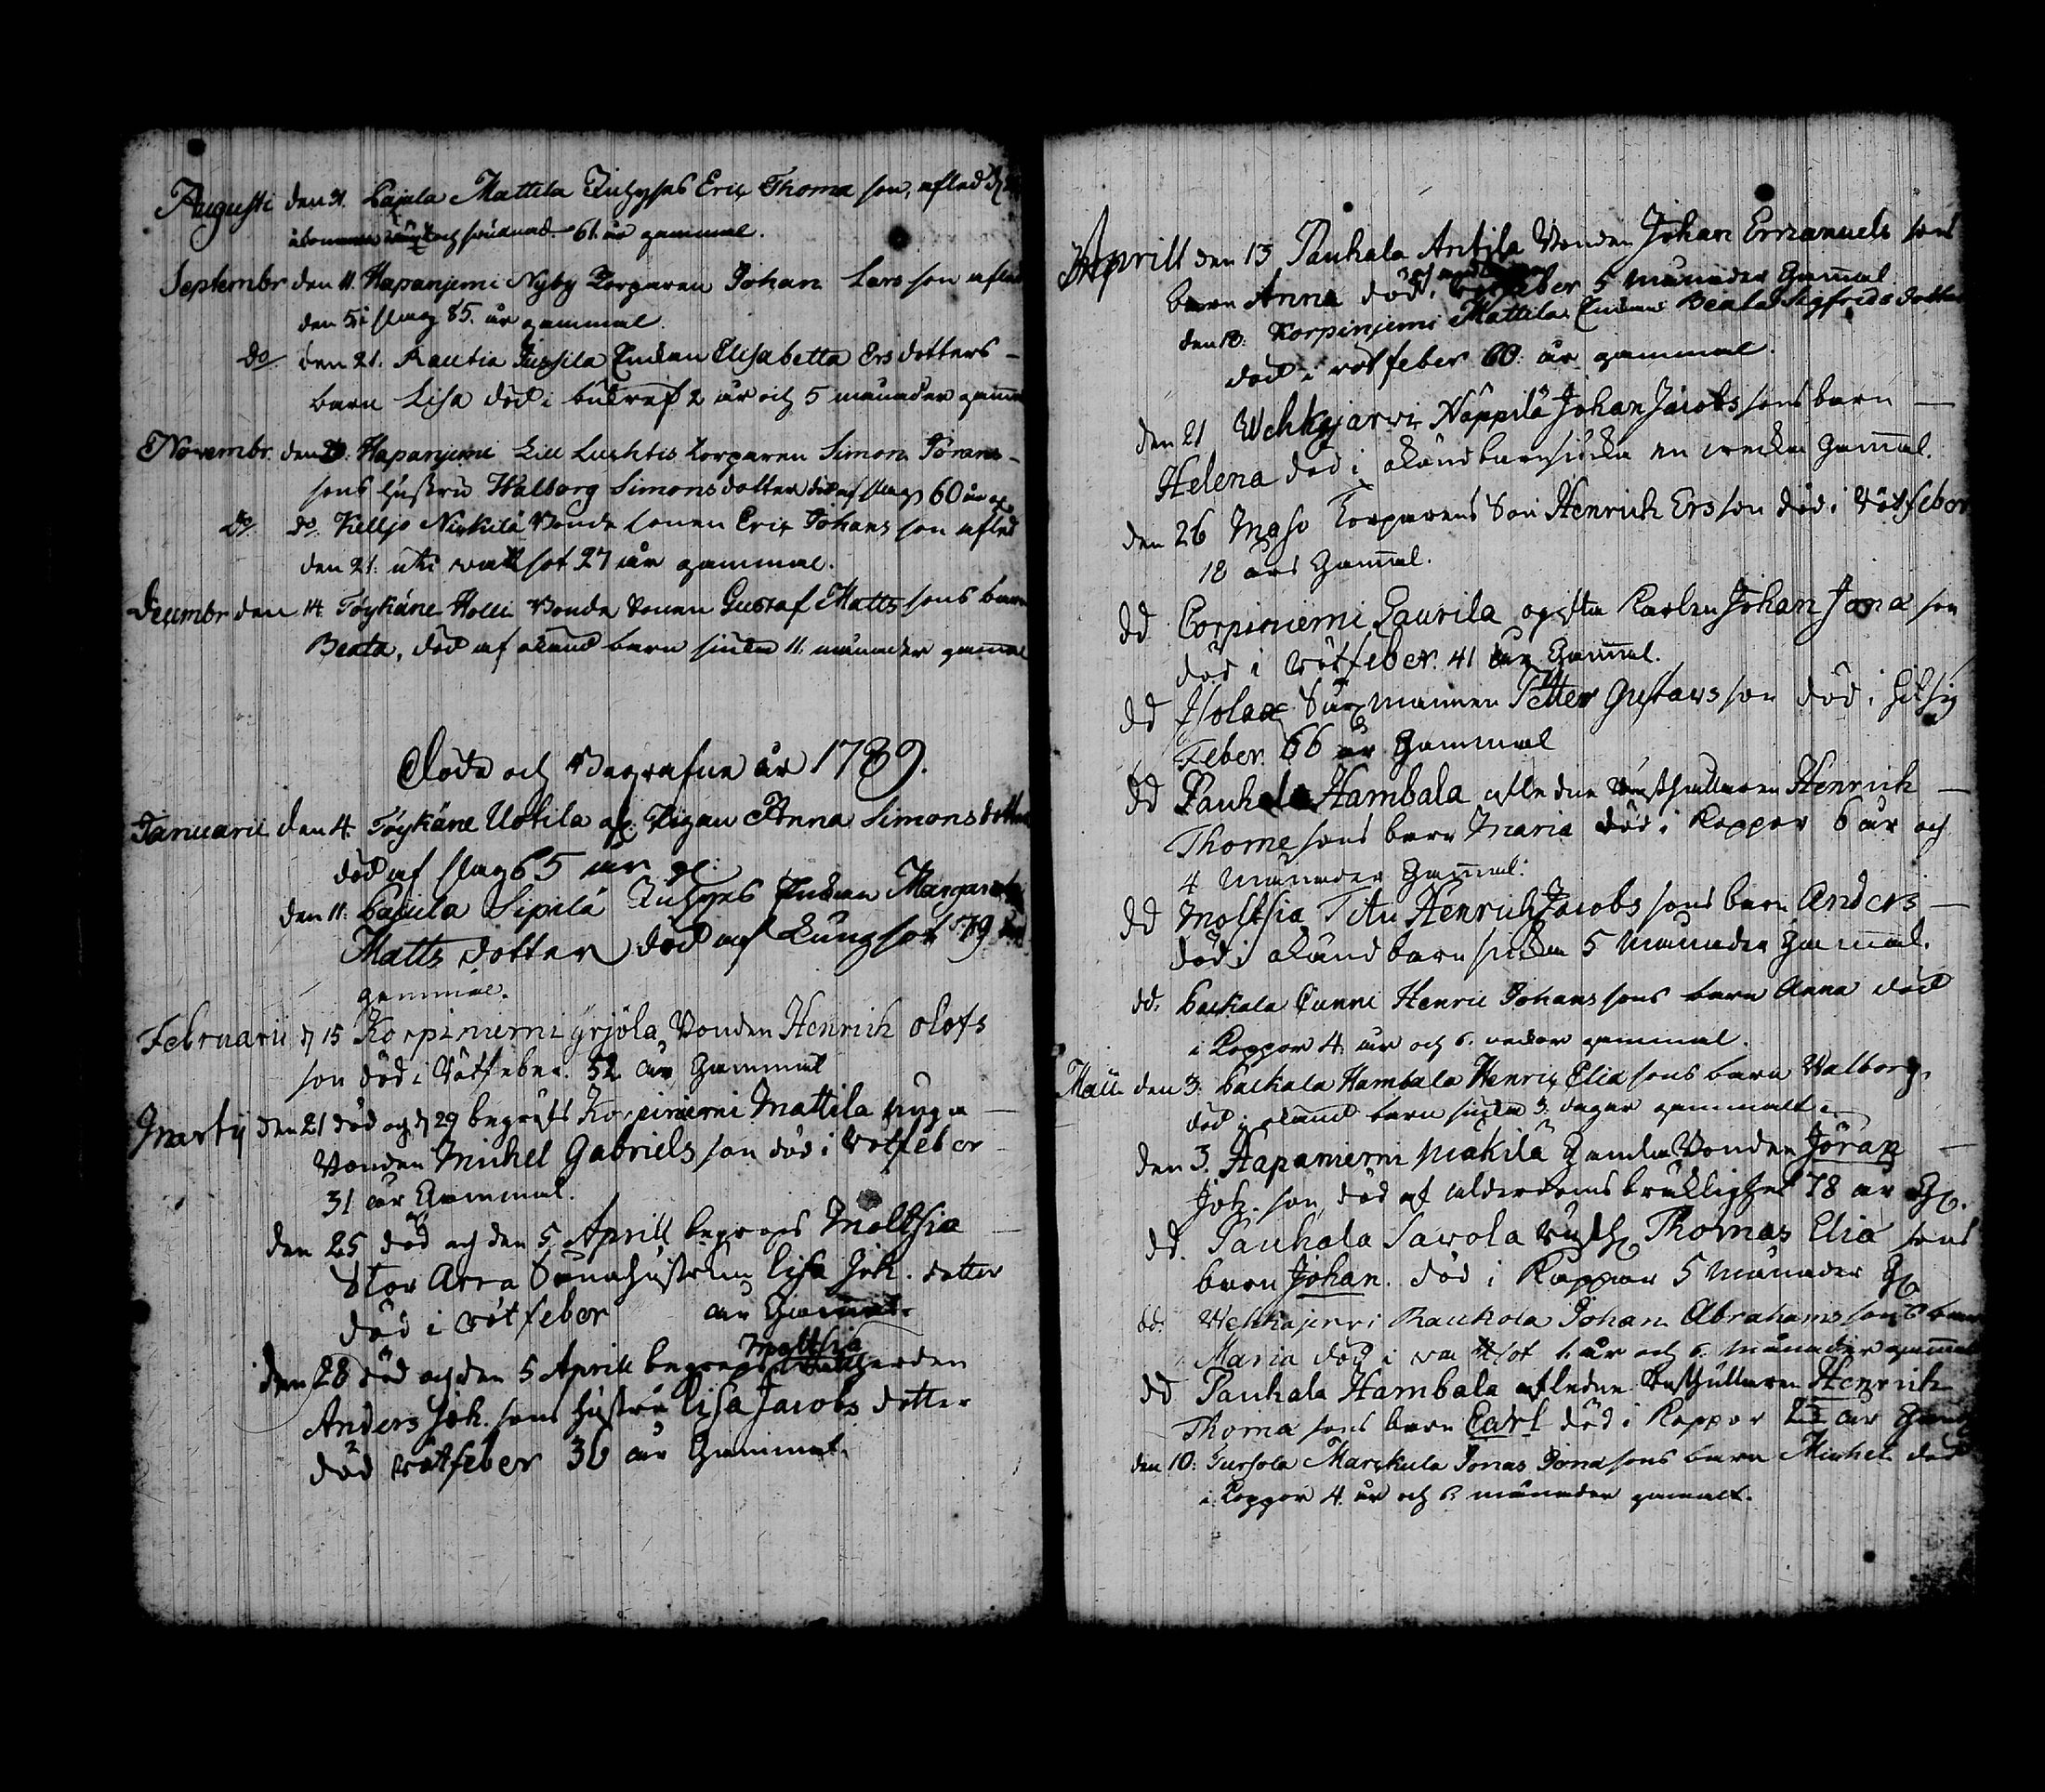 Augusti den 31. Cajala Mattila Inhyses Eric Thoma son, afled d
61. år gammal.
Septembr den 11. Hapanjemi Nyby Torparen Johan Lars son afled
den 5. i slag 85. år gammal.
do den 21. Rautia Jussila Enkan Elisabetta Ers dotters
barn Lisa död i bukref 2 år och 5 månader gamm
Novembr. den Hapanjemi Lill Luchtis Torparen Simon Jörans
sons hustru Walborg Simons dotter död af slag 60 år gl
do do Kelljo Nickilä Bonde sonen Eric Johans son afled
den 21. uti sot 27 år gammal.
Decembr den 14 Töykäne Holli Bonde sonen Gustaf Matts sons barn
Beata, död af okänd barn siuka 11. månader gamal
Döde och Begrafne år 1789.
Januarii den 4. Töykäne Uotila Pigan Anna Simons dotter
död af slag 65 år gl:
den 11. Cajala Sipilä Inhyses Enkan Margareta
Matts dotter död af Lungsot 79
gammal.
Februarii d 15 Korpiniemi yrjölä Bonden Henrich olofs
son död i Rötfeber. 52 år Gammal
Martij den 21 död och d 29 begrofs Korpiniemi Mattila unga
Bonden Michel Gabriels son död i Rötfeber
31 år Gammal.
den 25 död och den 5 Aprill begrofs Moltsia
Stor Arra Sonahustrun Lisa Joh. dotter
död i rötfeber år Gammal.
den 28 död och den 5 Aprill begrofs Moltsia
Anders Joh. sons hustru Lisa Jacobs dotter
död i rötfeber 36 år Gammal.
Aprill den 13 Pauhala Antila Bonden Johan Emanuels sons
barn Anna död 5 månader Gamal
den 18. Korpinjemi Mattila Enkan Beata Sigfrids dotter
död i rötfeber 60. år gammal.
den 21 Wehkajarvi Näppilä Johan Jacobs sons barn
Helena död i okänd barnsiuka en wecka Gamal.
den 26 Moso Torparens Son Henrich Ersson död i Rötfeber
18 års Gamal.
dd Corpiniemi Laurila ogifta Karlen Johan Jona son
död i Rötfeber. 41 år Gamal.
dd Isolax Petter Gustavs son död i hitsig
Feber. 66 år Gammal
dd Pauhala Hambala afledne Rusthållaren Henrich
Thome sons barn Maria död i Koppor 6 år och
4 Månader Gamal.
dd Moltsia Titu Henrich Jacobs sons barn Anders
död i okänd barn siuka 5 Månader Gammal.
dd. backala Cunni Henric Johans sons barn Anna död
i Koppor 4. år och 6. veckor gammal.
Maii den 3. backala Hambala Henric Elia sons barn Walborg,
död i okänd barn siuka 3. dagar gammalt
den 3. Hapaniemi Makilä Gamla Bonden Jöran
Joh. son, död af ålderdoms bräklighet 78 år Gl.
dd. Pauhala Savola Rusth Thomas Elia sons
barn Johan. död i Koppor 5 Månader Gl
dd. Wehkajervi Raukola Johan Abrahams sons barn
Maria död i sot 1. år och 6. månader gammal
dd Pauhala Hambala afledne Rusthållaren Henrich
Thoma sons barn Carl död i Koppor år Gamal
den 10. Tursola Marckula Jonas Jona sons barn Michel död
i Koppor 4. år och 6 månader gamalt.